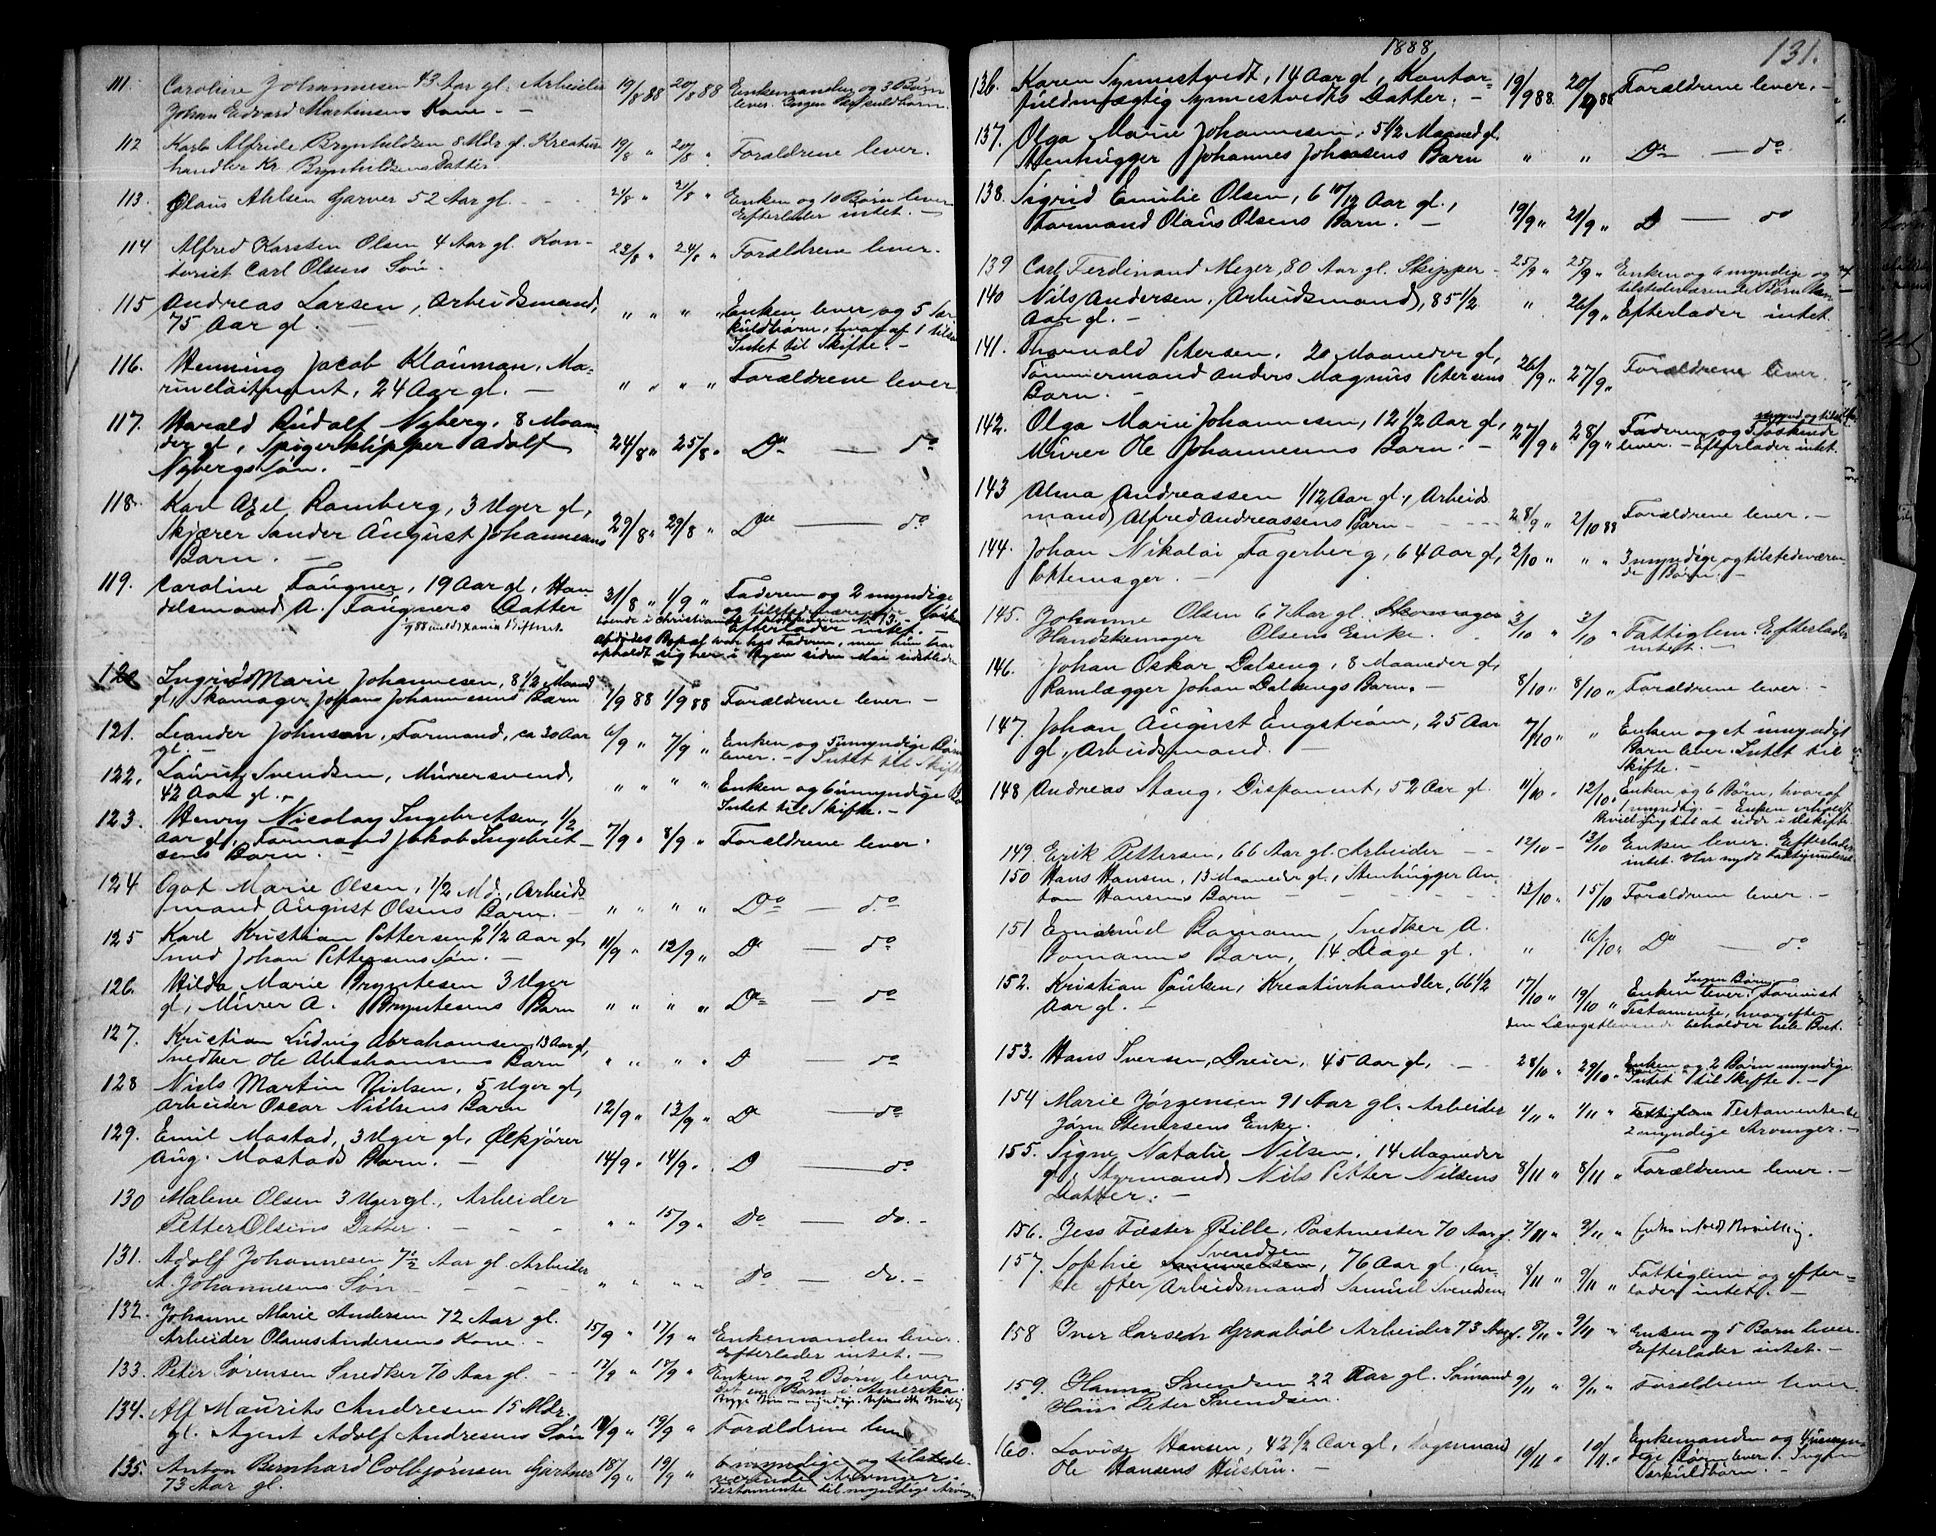 111. Caroline Johannesen 43 Aar gl. Arbeider 19/8 88 20/8 88 Enkemanden og 3 Børn
Johan Edvard Martinsens Kone — lever. Ingen Særkuldbørn.
112 Karla Alfride Brynhildsen 8 Mdr. gl. Kreatur 19/8 " 20/8 " Forældrene lever.
handler Kr. Brynhildsens Datter.
113. Olaus Ahlsen Garver 52 Aar gl. 21/8 " 21/8 " Enken og 10 Børn lever
Efterlader intet. —
114 Alfred Karsten Olsen 4 Aar gl. Kon- 23/8 " 24/8 " Forældrene lever.
torist Carl Olsens Søn.
115 Andreas Larsen, Arbeidsmand, " " " " Enken lever og 5 Sær
75 Aar gl. — kuldbørn, hvoraf 1
Intet til Skifte. —
116. Henning Jacob Klauman, Ma- " " " " Forældrene lever
rinelaitnant, 24 Aar gl. —
117. Harald Rudolf Nyberg, 8 Maan-
der gl, Spigerklipper Adolf 24/8 " 25/8 " Do — do
Nybergs Søn. —
118. Karl Axel Ramberg, 3 Uger gl,
Skjærer Sander August Johannesens 29/8 " 29/8 " Do — do
Barn. —
119. Caroline Faugner, 19 Aar gl, Han 31/8 " 1/9 " Faderen og 2 myndige
delsmand A. Faugners Datter og tilstedeværende
Efterlader intet. —
Afdødes Bopæl var hos Faderen, men hun har
opholdt sig her i Byen siden Mai
120 Ingrid Marie Johannesen, 8 1/2 Maaned
gl, Skomager Johans Johannesens Barn 1/9 88 1/9 88 Forældrene lever —
121. Leander Johnson, Formand, ca 30 Aar 6/9 " 7/9 " Enken og 5 umyndige Børn
gl. — lever. — Intet til Skifte
122. Lauritz Svendsen, Murersvend, " " Enken og 6 umyndige
42 Aar gl. — Intet til Skifte. —
123. Henry Nicolay Ingebretsen, 1/2
Aar gl, Formand Jakob Ingebret- 7/9 " 8/9 " Forældrene lever.
sens Barn. —
124 Ogot Marie Olsen, 1/2 Md., Arbeids-
mand August Olsens Barn. — " " " " Do — do
125 Karl Kristian Pettersen, 2 1/2 Aar gl, 11/9 " 12/9 " Do — do
Smed Johan Pettersens Søn. —
126. Hilda Marie Bryntesen 3 Uger
gl, Murer A. Bryntesens Barn " " " " Do — do
127. Kristian Ludvig Abrahamsen, 13 Aar gl,
Snedker Ole Abrahamsens Barn " " " " D — do
128 Niels Martin Nielsen, 5 Uger gl,
Arbeider Oscar Nielsens Barn 12/9 " 13/9 " D — do
129. Emil Mostad, 3 Uger gl, Ølkjører
Aug. Mostads Barn. — 14/9 " 14/9 " D — do
130 Malene Olsen 3 Uger gl., Arbeider
Petter Olsens Datter. — " " 15/9 " Do — do. —
131. Adolf Johannesen 7 1/2 Aar gl. Arbeider
A. Johannesens Søn — " " " " Do — do. —
132. Johanne Marie Andersen 72 Aar gl.
Arbeider Olaves Andersens Kone. — 15/9 " 17/9 " Enkemanden lever.
Efterlader intet. —
133. Peter Sørensen Snedker 70 Aar gl. 13/9 " 18/9 " Enken og 2 Børn lever
det ene Barn i Amerika.
134. Alf Maurits Andresen 15 Mdr.
gl. Agent Adolf Andresens Søn " 19/9 " Forældrene
135. Anton Bernhard Colbjørnsen Gjørtner 18/9 " 19/9 " 6 myndige og tilstede-
73 Aar gl. værende Arvinger.
Testamente til myndige
1888. 131.
136. Karen Synnestvedt, 14 Aar gl, Kontor- 19/9 88. 20/9 88 Forældrene lever. —
fuldmægtig Synnestvedts Datter. —
137. Olga Marie Johannesen, 5 1/2 Maaned gl.
Stenhugger Johannes Johnsens Barn " " Do — do
138. Sigrid Emilie Olsen, 6 10/12 Aar gl.,
Formand Olaus Olsens Barn. — 19/9 " 21/9 " D — do
139 Carl Ferdinand Meyer, 80 Aar gl. Skipper — 25/9 " 25/9 " Enken og 6 myndige og
tilstedeværende Børn
140 Nils Andersen, Arbeidsmand, 85 1/2 " 26/9 " Efterlader intet.
Aar gl. —
141. Thorvald Petersen, 20 Maaneder gl,
Tømmermand Anders Magnus Petersens 26/9 " 27/9 " Forældrene lever.
Barn. —
142. Olga Marie Johannesen, 12 1/2 Aar gl, 27/9 " 28/9 " Faderen og Søskende
Murer Ole Johannesens Barn. — lever. — Efterlader intet.
143 Alma Andreassen 1/12 Aar gl., Arbeids
mand Alfred Andreassens Barn — 28/9 " 2/10 88 Forældrene lever. —
144. Johan Nikolai Fagerberg, 64 Aar gl, 2/10 " " " 3 myndige og tilstedeværen-
Pottemager. — de Børn. —
145. Johanne Olsen 67 Aar gl. Skomager 3/10 " 3/10 " Fattiglem. Efterlader
Handskemager Olsens Enke. intet. —
146. Johan Oskar Dalseng, 8 Maaneder gl,
Ramlægger Johan Dalsengs Barn. — 8/10 " 8/10 " Forældrene lever. —
147. Johan August Engstrøm, 25 Aar 7/10 " " Enken og et umyndigt
gl, Arbeidsmand. — Barn lever. Intet til
Skifte. —
148 Andreas Stang, Disponent, 52 Aar gl. 11/10 " 12/10 " Enken og 6 Børn, hvoraf
1 myndig. — Enken erholdt
Bevilling til at sidde i Uskifte.
149. Erik Pettersen, 66 Aar gl. Arbeider — 12/10 — 13/10 Enken lever. Efterlader
intet. Har nydt Fattigunderst
150 Hans Hansen, 13 Maaneder gl., Stenhugger An-
ton Hansens Barn 13/10 " 15/10 Forældrene lever. —
151 Emanuel Bomann, Snedker A.
Bomanns Barn, 14 Dage gl. " 16/10 " Do — do
152. Kristian Paulsen, Kreaturhandler, 66 1/2 17/10 " 19/10 " Ingen Børn
Aar gl. — Enken lever.
Testamente, hvorefter
den Længstlevende beholder hele Boet.
153. Hans Iversen, Dreier, 45 Aar gl, — 28/10 " 29/10 " Enken og 2 Børn umyndige
Intet til Skifte. —
154 Marie Jørgensen 91 Aar gl. Arbeider 1/11 " 1/11 " Fattiglem
Jørn Stenersens Enke. 2 myndige Arvinger. —
155. Signe Natalie Nilsen, 14 Maaneder
gl, Styrmand Nils Petter Nilsens 8/11 " 8/11 " Forældrene lever. —
Datter. —
156. Jess Fæster Bille, Postmester 70 Aar gl. 7/11 " "
157. Sophie Samuelsen Svendsen, 76 Aar gl., En-
ke efter Arbeidsmand Samuel Svendsen 8/11 " 9/11 " Fattiglem og efter-
lader intet. —
158 Iver Larsen Graabøl Arbeider 73 Aar gl. 8/11 " 9/11 " Enken og 5 Børn lever.
Efterlader intet. —
159. Hanna Svendsen 22 Aar gl. Sømand 9/11 " 9/11 " Forældrene lever.
Hans Peter Svendsen.
160. Lovise Hansen, 42 1/2 Aar gl, 10/11 " 10/11 " Enkemanden og 4 umyn-
Ole Hansens Hustru. — dige Børn lever. Ingen
Særkuldbørn. —